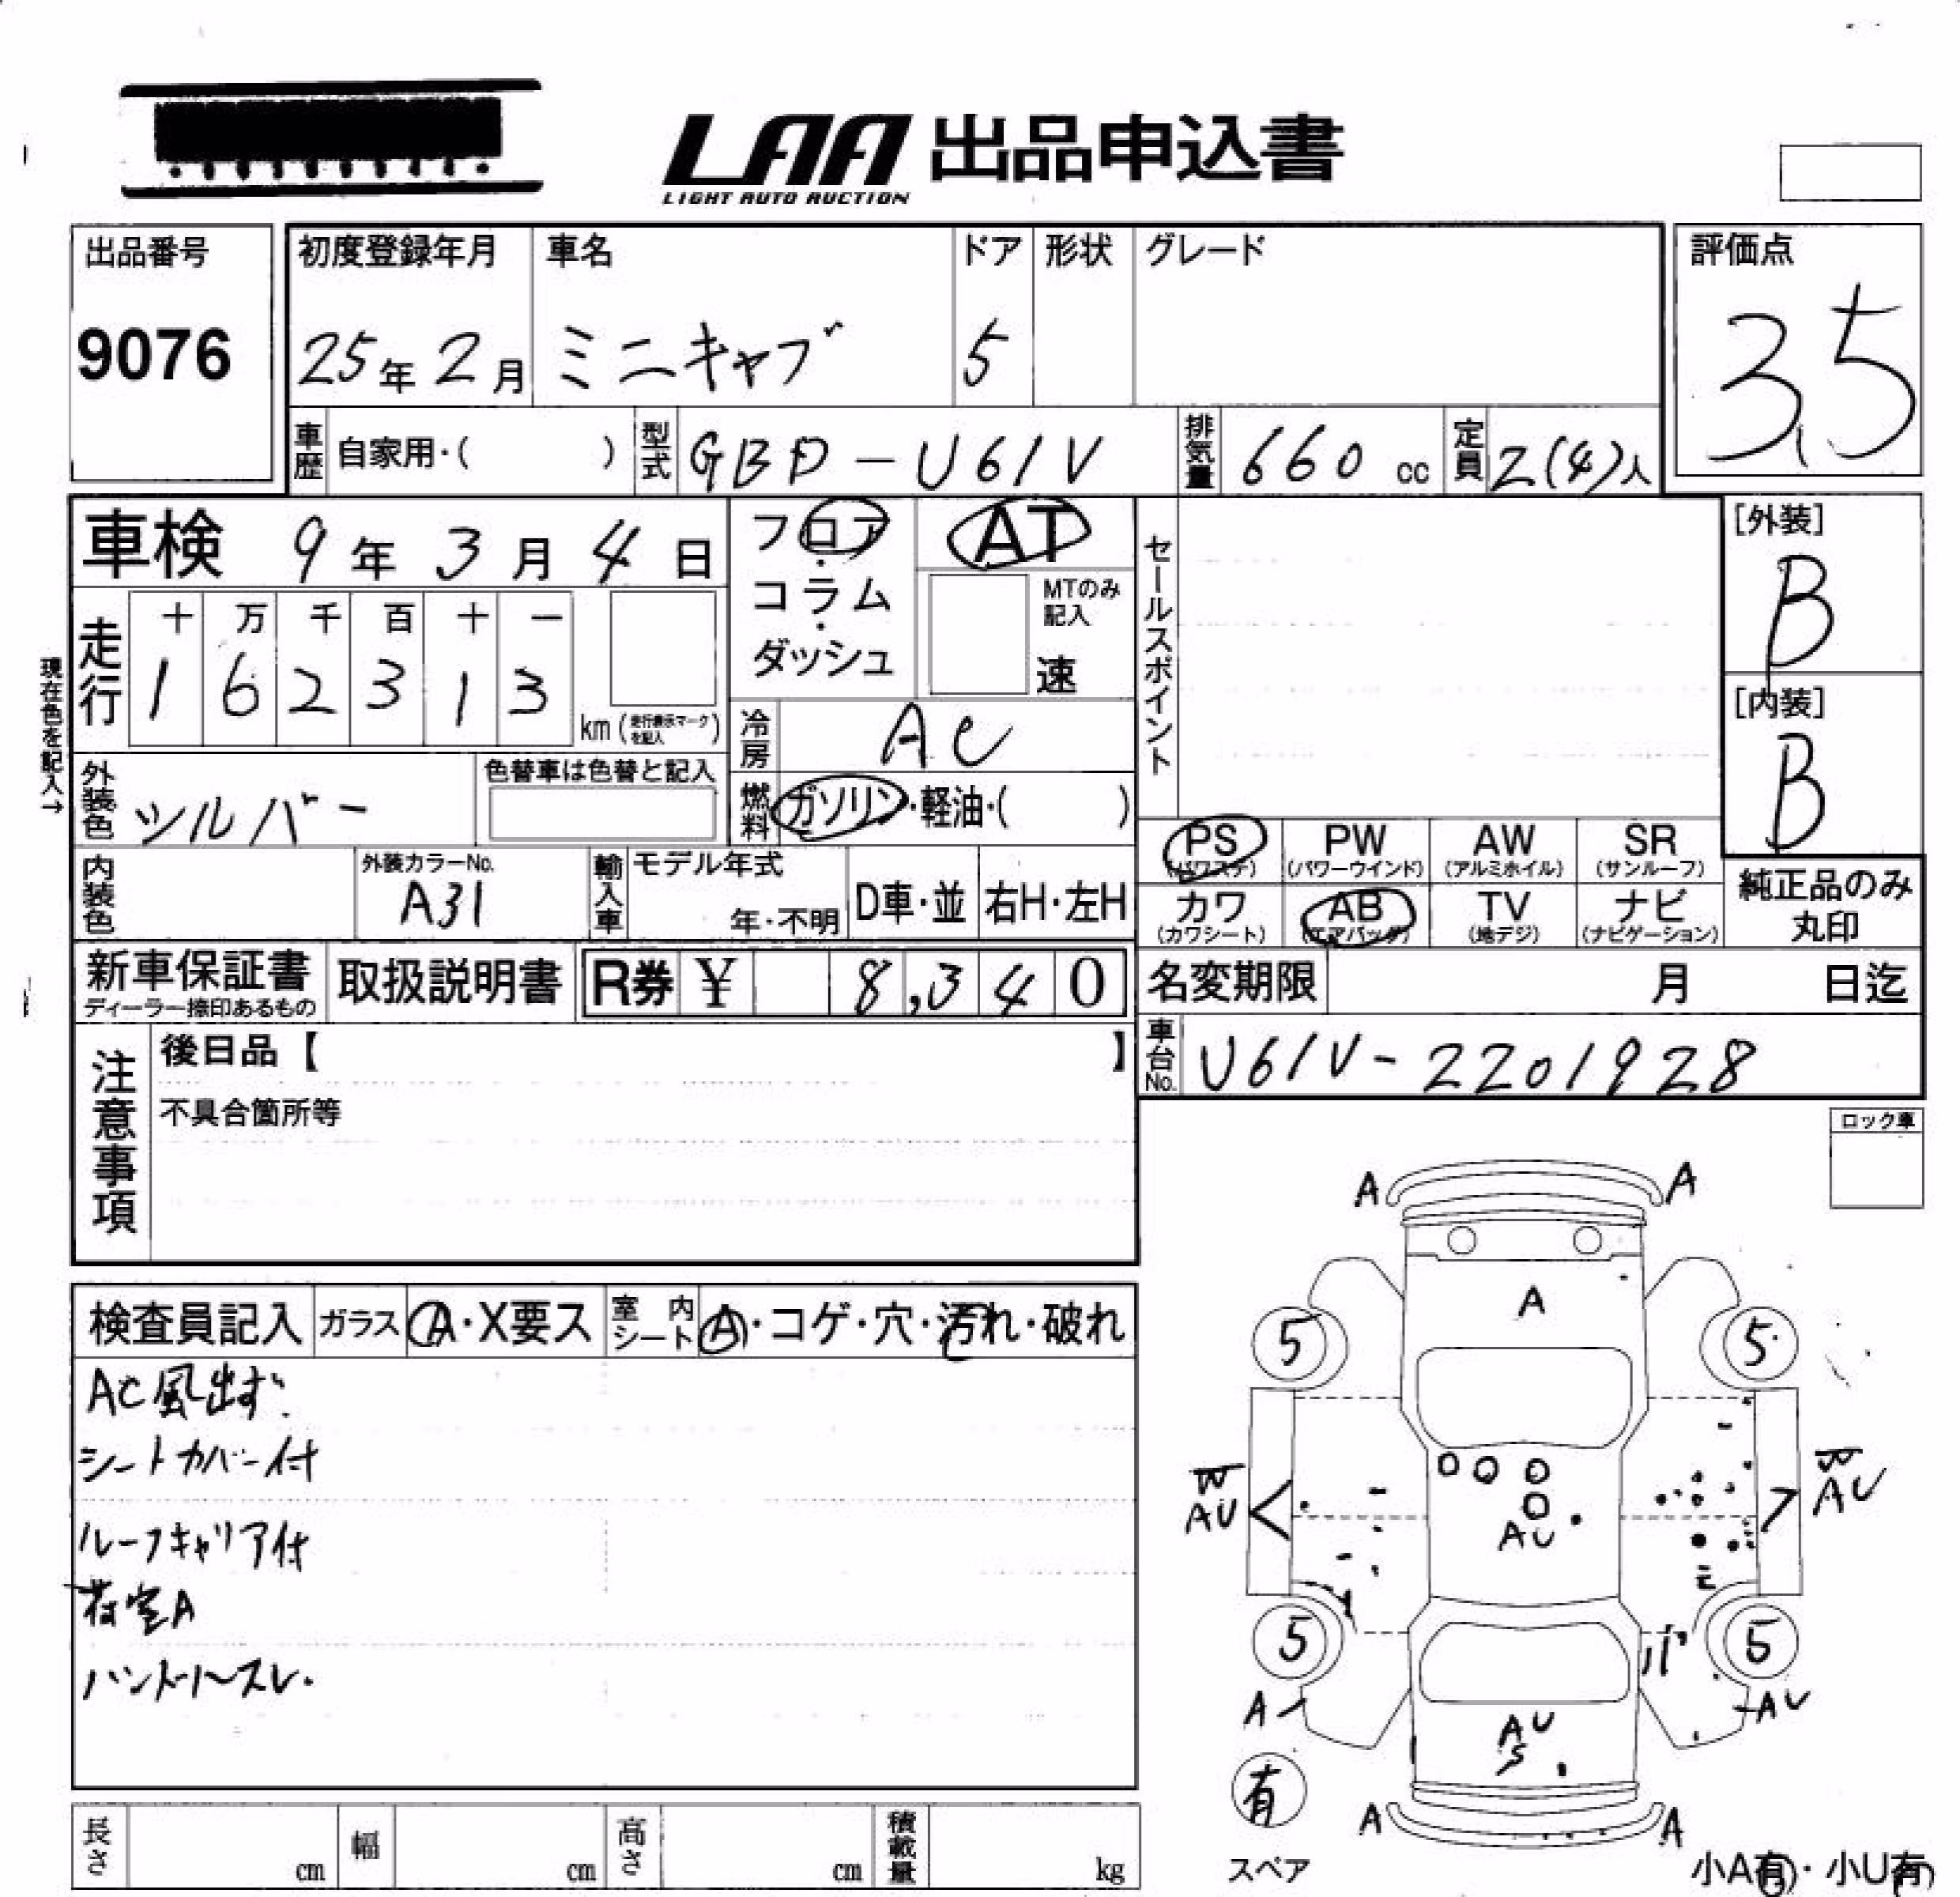 LAA 出品申込書
LIGHT AUTO AUCTION
出品番号
9076
初度登録年月
25年 2月
車名
ミニキャブ
ドア
5
形状
グレード
評価点
3.5
車歴 自家用・( )
型式 GBD-U61V
排気量 660 cc
定員 2(4)人
車検 9年 3月 4日
フロア・コラム・ダッシュ
AT
MTのみ記入
速
セールスポイント
[外装]
B
[内装]
B
現在色を記入→
走行
十 万 千 百 十 一
1 6 2 3 1 3
km (走行表示マークを記入)
冷房 AC
燃料 ガソリン・軽油・( )
外装色 シルバー
色替車は色替と記入
内装色
外装カラーNo.
A31
輸入車
モデル年式
年・不明
D車・並
右H・左H
PS (パワステ)
PW (パワーウインド)
AW (アルミホイル)
SR (サンルーフ)
カワ (カワシート)
AB (エアバッグ)
TV (地デジ)
ナビ (ナビゲーション)
純正品のみ丸印
新車保証書
ディーラー捺印あるもの
取扱説明書
R券 ¥ 8,340
名変期限 月 日迄
車台No. U61V-2201928
注意事項
後日品【 】
不具合箇所等
ロック車
検査員記入
ガラス A・X要ス
室内シート A・コゲ・穴・汚れ・破れ
AC風出ず.
シートカバー付
ルーフキャリア付
荷室A
ハンドルスレ.
A A
A
5 5
W W
AU AU
AU
5 5
A AU
AU
S
有
A A
スペア
小A有・小U有
長さ cm
幅 cm
高さ cm
積載量 kg